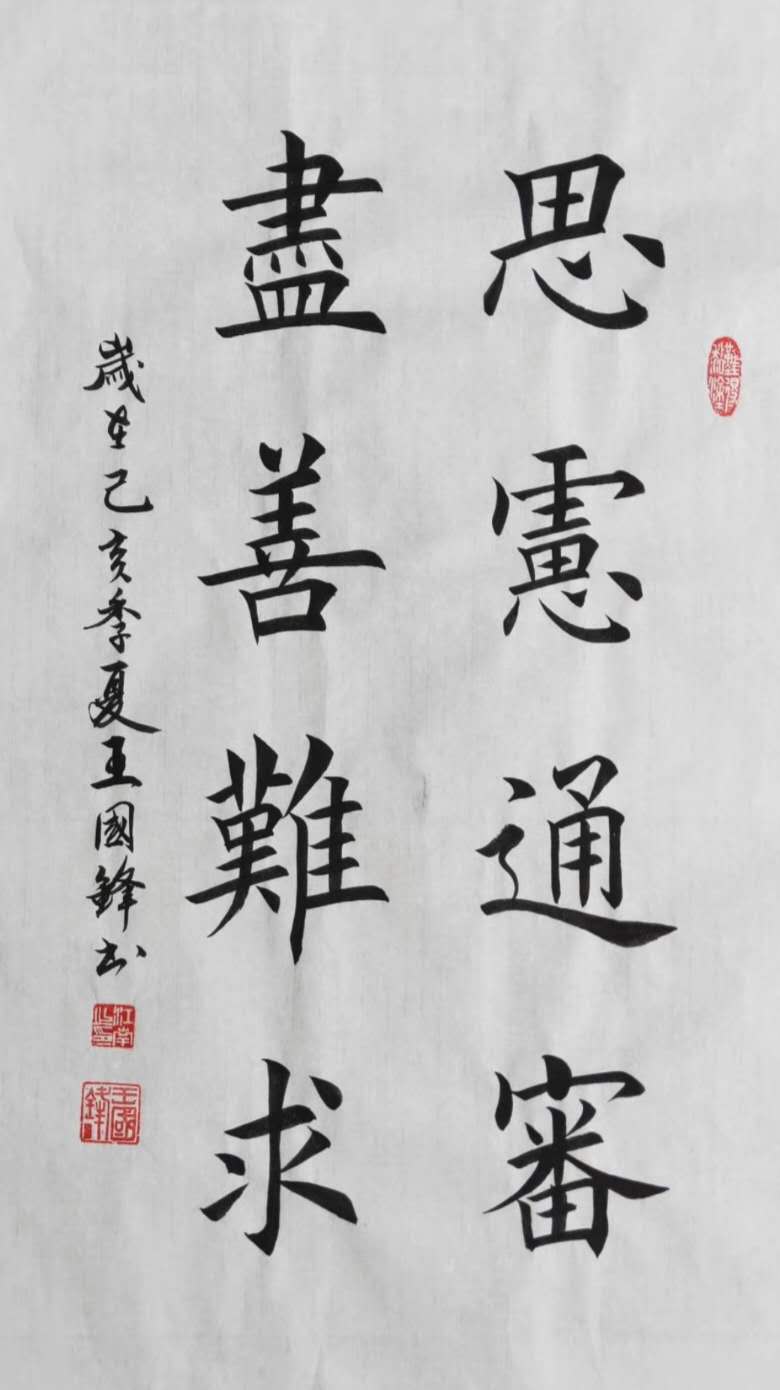 思慮通審
盡善難求
歲在己亥季夏王國鋒书
王國鋒